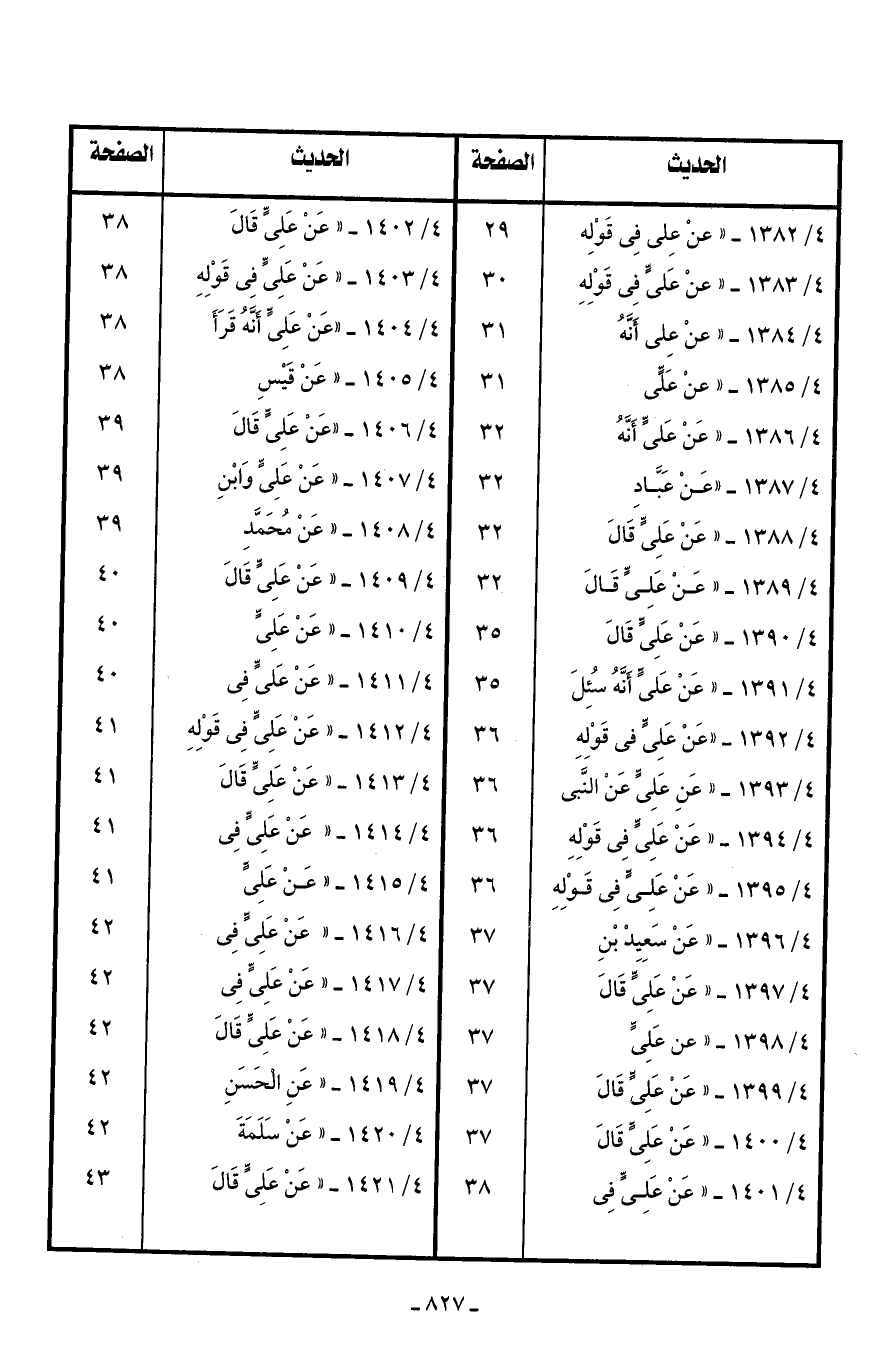 الحديث الصفحة الحديث الصفحة
٤/ ١٣٨٢ ـ « عنْ على فِى قَوْلِه ٢٩ ٤/ ١٤٠٢ ـ « عَنْ عَلِىٍّ قَالَ ٣٨
٤/ ١٣٨٣ ـ « عنْ عَلىٍّ فِى قَوْلِهِ ٣٠ ٤/ ١٤٠٣ ـ « عَنْ عَلِىٍّ فِى قَوْلِهِ ٣٨
٤/ ١٣٨٤ ـ « عنْ على أَنَّهُ ٣١ ٤/ ١٤٠٤ ـ «عَنْ عَلِىٍّ أَنَّهُ قَرَأَ ٣٨
٤/ ١٣٨٥ ـ « عنْ عَلَّى ٣١ ٤/ ١٤٠٥ ـ « عَنْ قَيْسِ ٣٨
٤/ ١٣٨٦ ـ « عَنْ عَلىٍّ أَنَّهُ ٣٢ ٤/ ١٤٠٦ ـ «عَنْ عَلِىٍّ قَالَ ٣٩
٤/ ١٣٨٧ ـ «عَـنْ عَبَّـادِ ٣٢ ٤/ ١٤٠٧ ـ « عَنْ عَلِىٍّ وَابْنِ ٣٩
٤/ ١٣٨٨ ـ « عَنْ عَلِىٍّ قَالَ ٣٢ ٤/ ١٤٠٨ ـ « عَنْ مُحَمَّدِ ٣٩
٤/ ١٣٨٩ ـ « عَـنْ عَلـىٍّ قَـالَ ٣٢ ٤/ ١٤٠٩ ـ « عَنْ عَلِىٍّ قَالَ ٤٠
٤/ ١٣٩٠ ـ « عَنْ عَلِىٍّ قَالَ ٣٥ ٤/ ١٤١٠ ـ « عَنْ عَلِىٍّ ٤٠
٤/ ١٣٩١ ـ « عَنْ عَلىٍّ أَنَّهُ سُئِلَ ٣٥ ٤/ ١٤١١ ـ « عَنْ عَلىٍّ فِى ٤٠
٤/ ١٣٩٢ ـ «عَنْ عَلِىٍّ فى قَوْلِهِ ٣٦ ٤/ ١٤١٢ ـ « عَنْ عَلِىٍّ فِى قَوْلِهِ ٤١
٤/ ١٣٩٣ ـ « عَنِ عَلِىٍّ عَنْ النَّبى ٣٦ ٤/ ١٤١٣ ـ « عَنْ عَلِىٍّ قَالَ ٤١
٤/ ١٣٩٤ ـ « عَنْ عَلِىٍّ فِى قَوْلِهِ ٣٦ ٤/ ١٤١٤ ـ « عَنْ عَلِىٍّ فِى ٤١
٤/ ١٣٩٥ ـ « عَنْ عَلـىٍّ فِى قَـوْلِهِ ٣٦ ٤/ ١٤١٥ ـ « عَـنْ عَلِىٍّ ٤١
٤/ ١٣٩٦ ـ « عَنْ سَعِيدْ بْنِ ٣٧ ٤/ ١٤١٦ ـ « عَنْ عَلىٍّ فِى ٤٢
٤/ ١٣٩٧ ـ « عَنْ عَلِىٍّ قَالَ ٣٧ ٤/ ١٤١٧ ـ « عَنْ عَلِىٍّ فِى ٤٢
٤/ ١٣٩٨ ـ « عن علِىٍّ ٣٧ ٤/ ١٤١٨ ـ « عَنْ عَلِىٍّ قَالَ ٤٢
٤/ ١٣٩٩ ـ « عَنْ عَلِىٍّ قَالَ ٣٧ ٤/ ١٤١٩ ـ « عَنِ الْحَسَنِ ٤٢
٤/ ١٤٠٠ ـ « عَنْ عَلِىٍّ قَالَ ٣٧ ٤/ ١٤٢٠ ـ « عَنْ سَلَمَةَ ٤٢
٤/ ١٤٠١ ـ « عَنْ عَلـىٍّ فِى ٣٨ ٤/ ١٤٢١ ـ « عَنْ عَلِىٍّ قَالَ ٤٣
ـ ٨٢٧ ـ